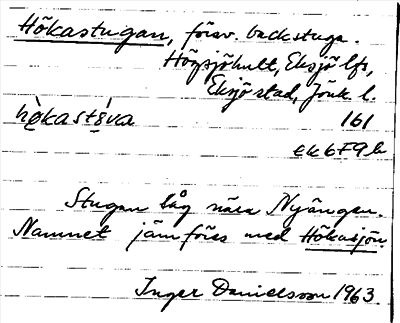 Hökastugan, försv. backstuga.
Högsjöhult, Eksjö lfs,
Eksjö stad, Jönk l.
hò̤kast8́va 161
ek 6F9b
Stugan låg nära Nyängen.
Namnet jämföres med Hökasjön.
Inger Danielsson 1963